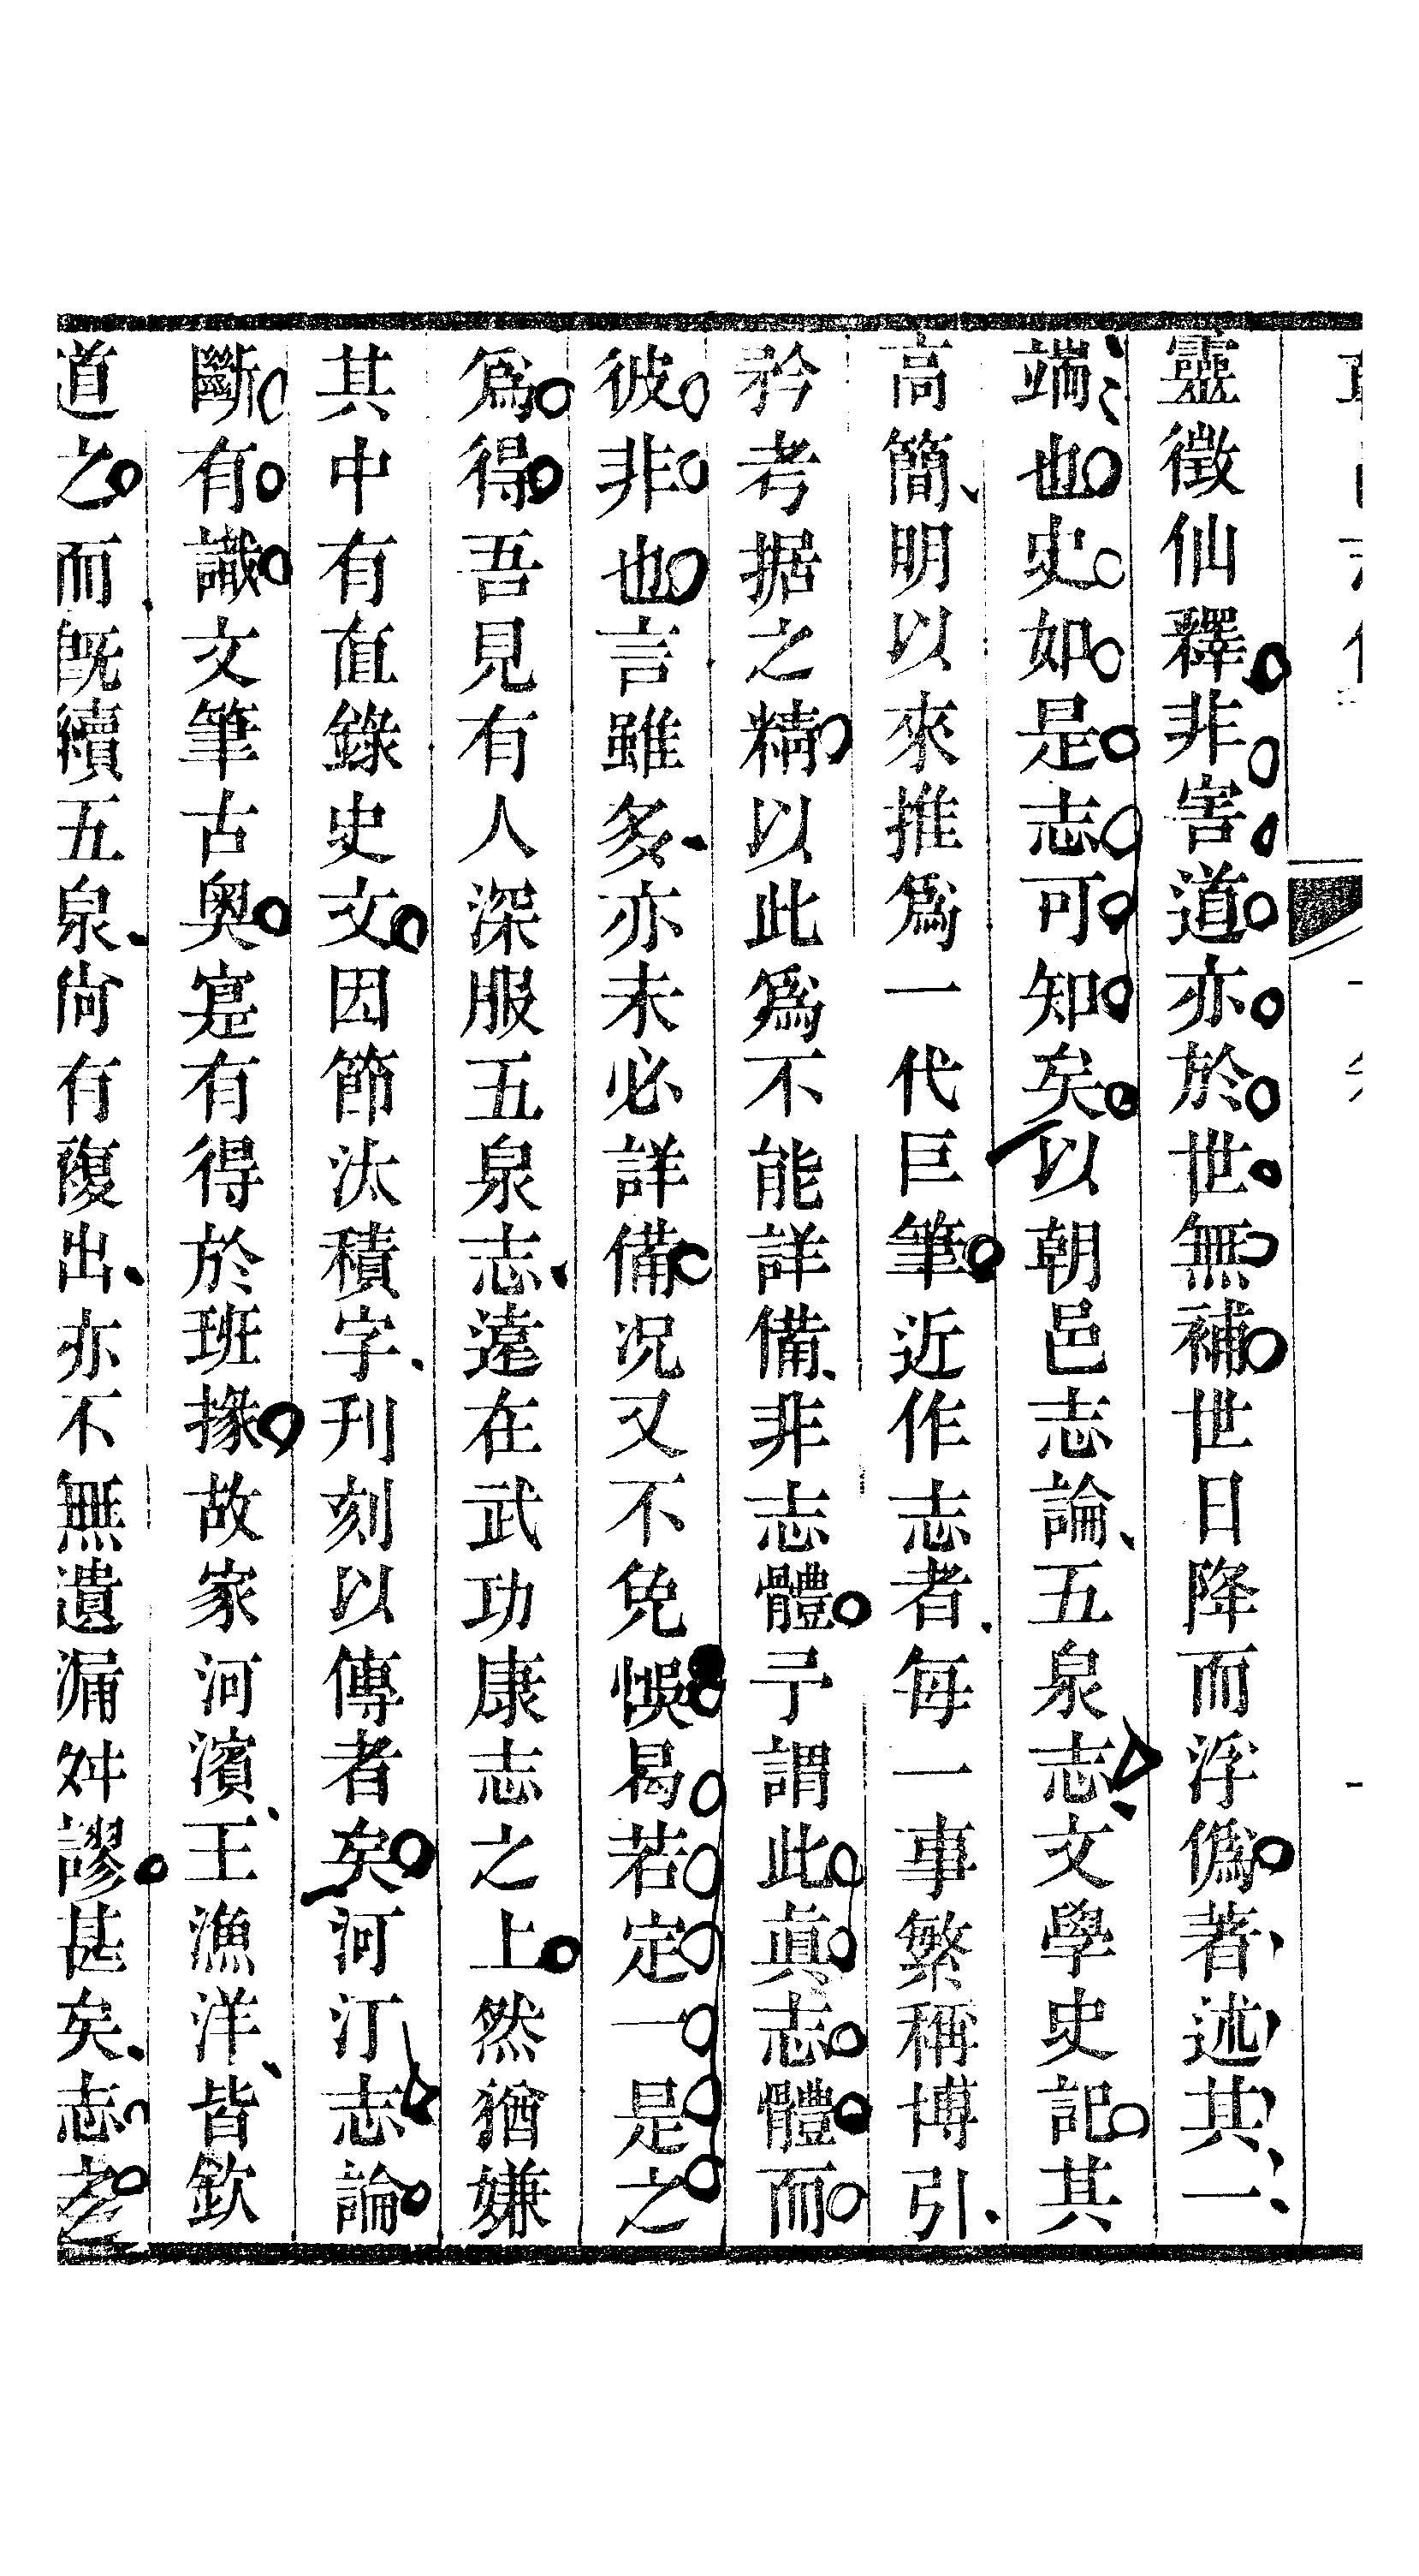 靈徵仙釋非害道亦於世無補世日降而浮僞著述其一
端也史如是志可知矣以朝邑志論五泉志文學史記其
高簡明以來推爲一代巨筆近作志者每一事繁稱博引
矜考据之精以此爲不能詳備非志體予謂此眞志體而
彼非也言雖多亦未必詳備况又不免悞曷若定一是之
爲得吾見有人深服五泉志遠在武功康志之上然猶嫌
其中有直錄史文因節汰積字刊刻以傳者矣河汀志論
斷有識文筆古奧寔有得於班掾故家河濱王漁洋皆欽
道之而旣續五泉尙有複出亦不無遺漏舛謬甚矣志之